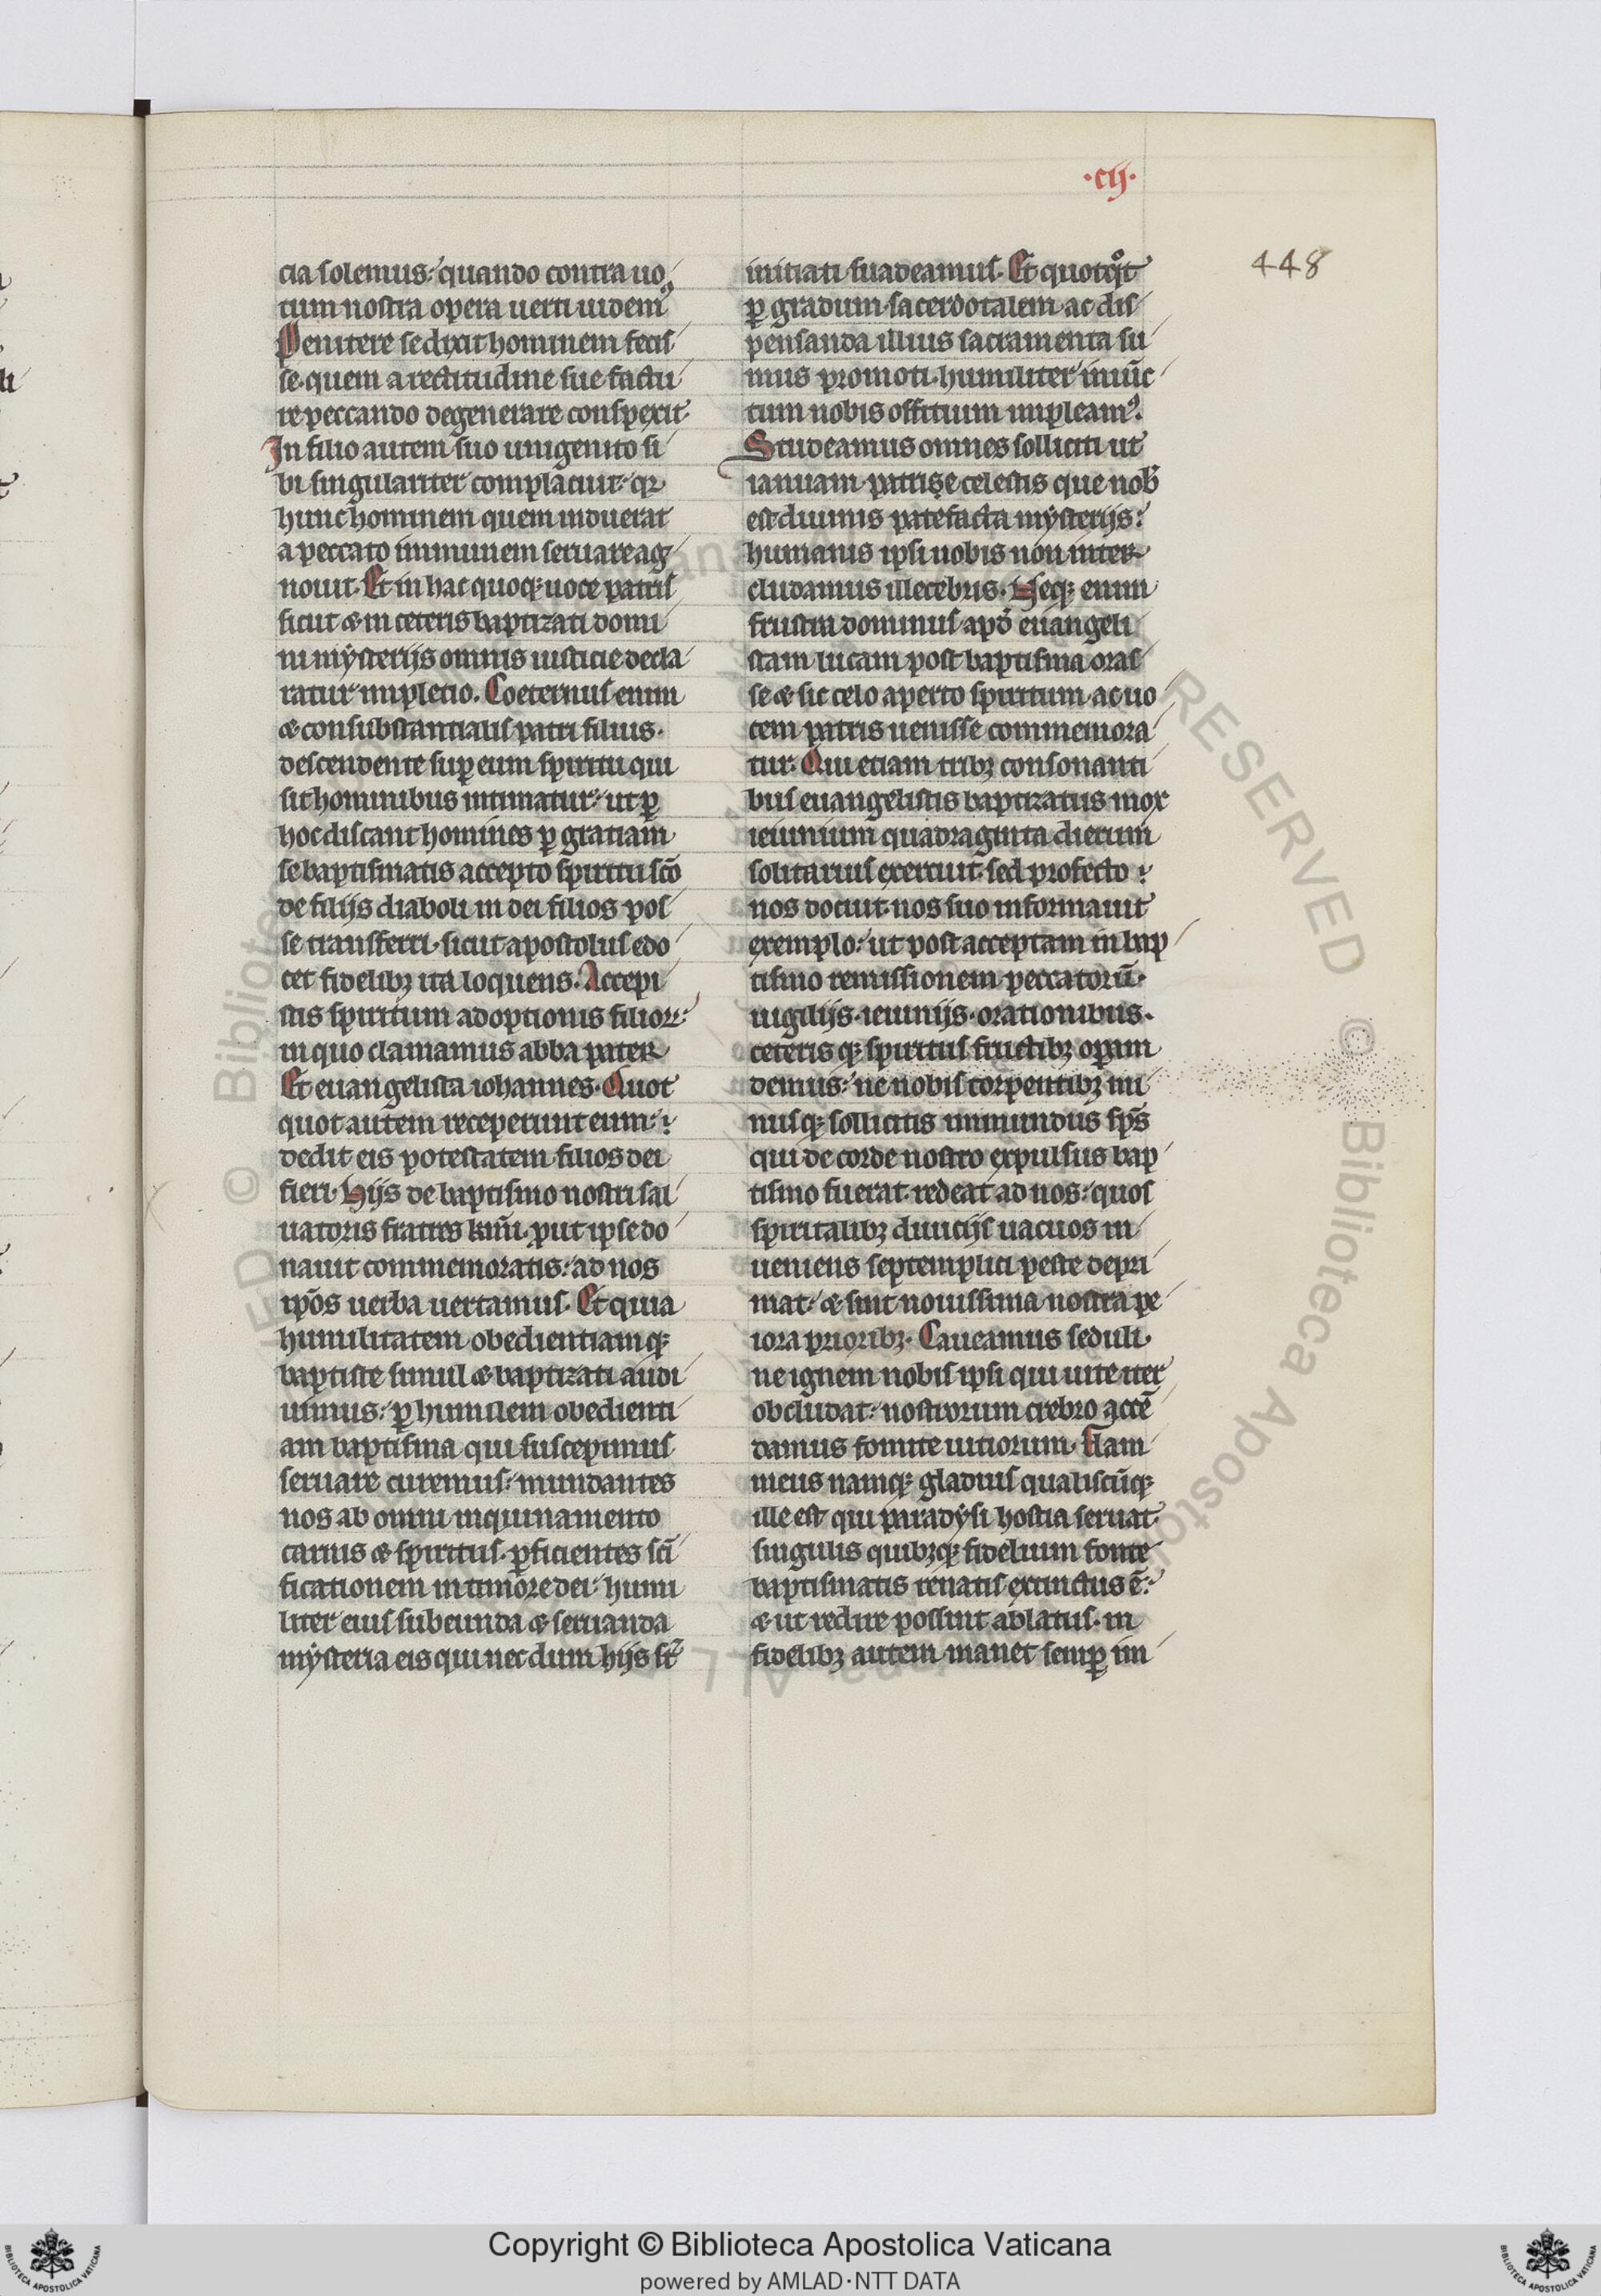 ·cij·
448
cia solemus: quando contra uo
tum nostra opera uerti uidemꝰ
Penitere se dixit hominem fecis
se. quem a rectitudine sue factu
re peccando degenerare conspexit
In filio autem suo unigenito si
bi singulariter complacuit. qꝛ
hunc hominem quem induerat
a peccato immunem seruare ag
nouit. Et in hac quoqꝫ uoce patris
sicut & in ceteris baptizati domi
ni mysterijs omnis iusticie decla
ratur impletio. Coeternus enim
& consubstantialis patri filius.
descendente suꝑ eum spiritu qui
sit hominibus intimatur: ut ꝑ
hoc discant homines ꝑ gratiam
se baptismatis accepto spiritu sc̄o
de filijs diaboli in dei filios pos
se transferri. sicut apostolus edo
cet fidelibꝫ ita loquens. Accepi
stis spiritum adoptionis filioꝝ:
in quo clamamus abba pater
Et euangelista iohannes. Quot
quot autem receperunt eum:
dedit eis potestatem filios dei
fieri. Hijs de baptismo nostri sal
uatoris fratres km̄i. ꝓut ipse do
nauit commemoratis: ad nos
ip̄os uerba uertamus. Et quia
humilitatem obedientiamqꝫ
baptiste simul & baptizati audi
uimus: ꝑ humilem obedienti
am baptisma qui suscepimus
seruare curemus: mundantes
nos ab omni inquinamento
carnis & spiritus. ꝑficientes sc̄i
ficationem in timore dei: humi
liter eius subeunda & seruanda
mysteria eis qui necdum hijs st̄
initiati suadeamus. Et quotqͦt
ꝑ gradum sacerdotalem ac dis
pensanda illius sacramenta su
mus promoti. humiliter iniūc
tum nobis offitium impleamꝰ.
Studeamus omnes solliciti ut
ianuam patrię celestis que nob̄
est diuinis patefacta mysterijs:
humanis ipsi nobis non inter
cludamus illecebris. Neqꝫ enim
frustra dominus apd̄ euangeli
stam lucam post baptisma oras
se & sic celo aperto spiritum ac uo
cem patris uenisse commemora
tur. Qui etiam tribꝫ consonanti
bus euangelistis baptizatus mox
ieiunium quadraginta dierum
solitarius exercuit. sed profecto
nos docuit. nos suo informauit
exemplo: ut post acceptam in bap
tismo remissionem peccatorū.
uigilijs. ieiunijs. orationibus.
ceteris qꝫ spiritus fructibꝫ oꝑam
demus: ne nobis torpentibꝫ mi
nusqꝫ sollicitis immundus sp̄s
qui de corde nostro expulsus bap
tismo fuerat. redeat ad nos: quos
spiritalibꝫ diuicijs uacuos in
ueniens septemplici peste depri
mat: & sint nouissima nostra pe
iora prioribꝫ. Caueamus seduli.
ne ignem nobis ipsi qui uite iter
obcludat: nostrorum crebro accē
damus fomite uitiorum. Flam
meus namqꝫ gladius qualiscūqꝫ
ille est qui paradysi hostia seruat.
singulis quibꝫqꝫ fidelium fonte
baptismatis renatis extinctus ē:
& ut redire possint ablatus. in
fidelibꝫ autem manet semꝑ im
Copyright © Biblioteca Apostolica Vaticana
powered by AMLAD·NTT DATA